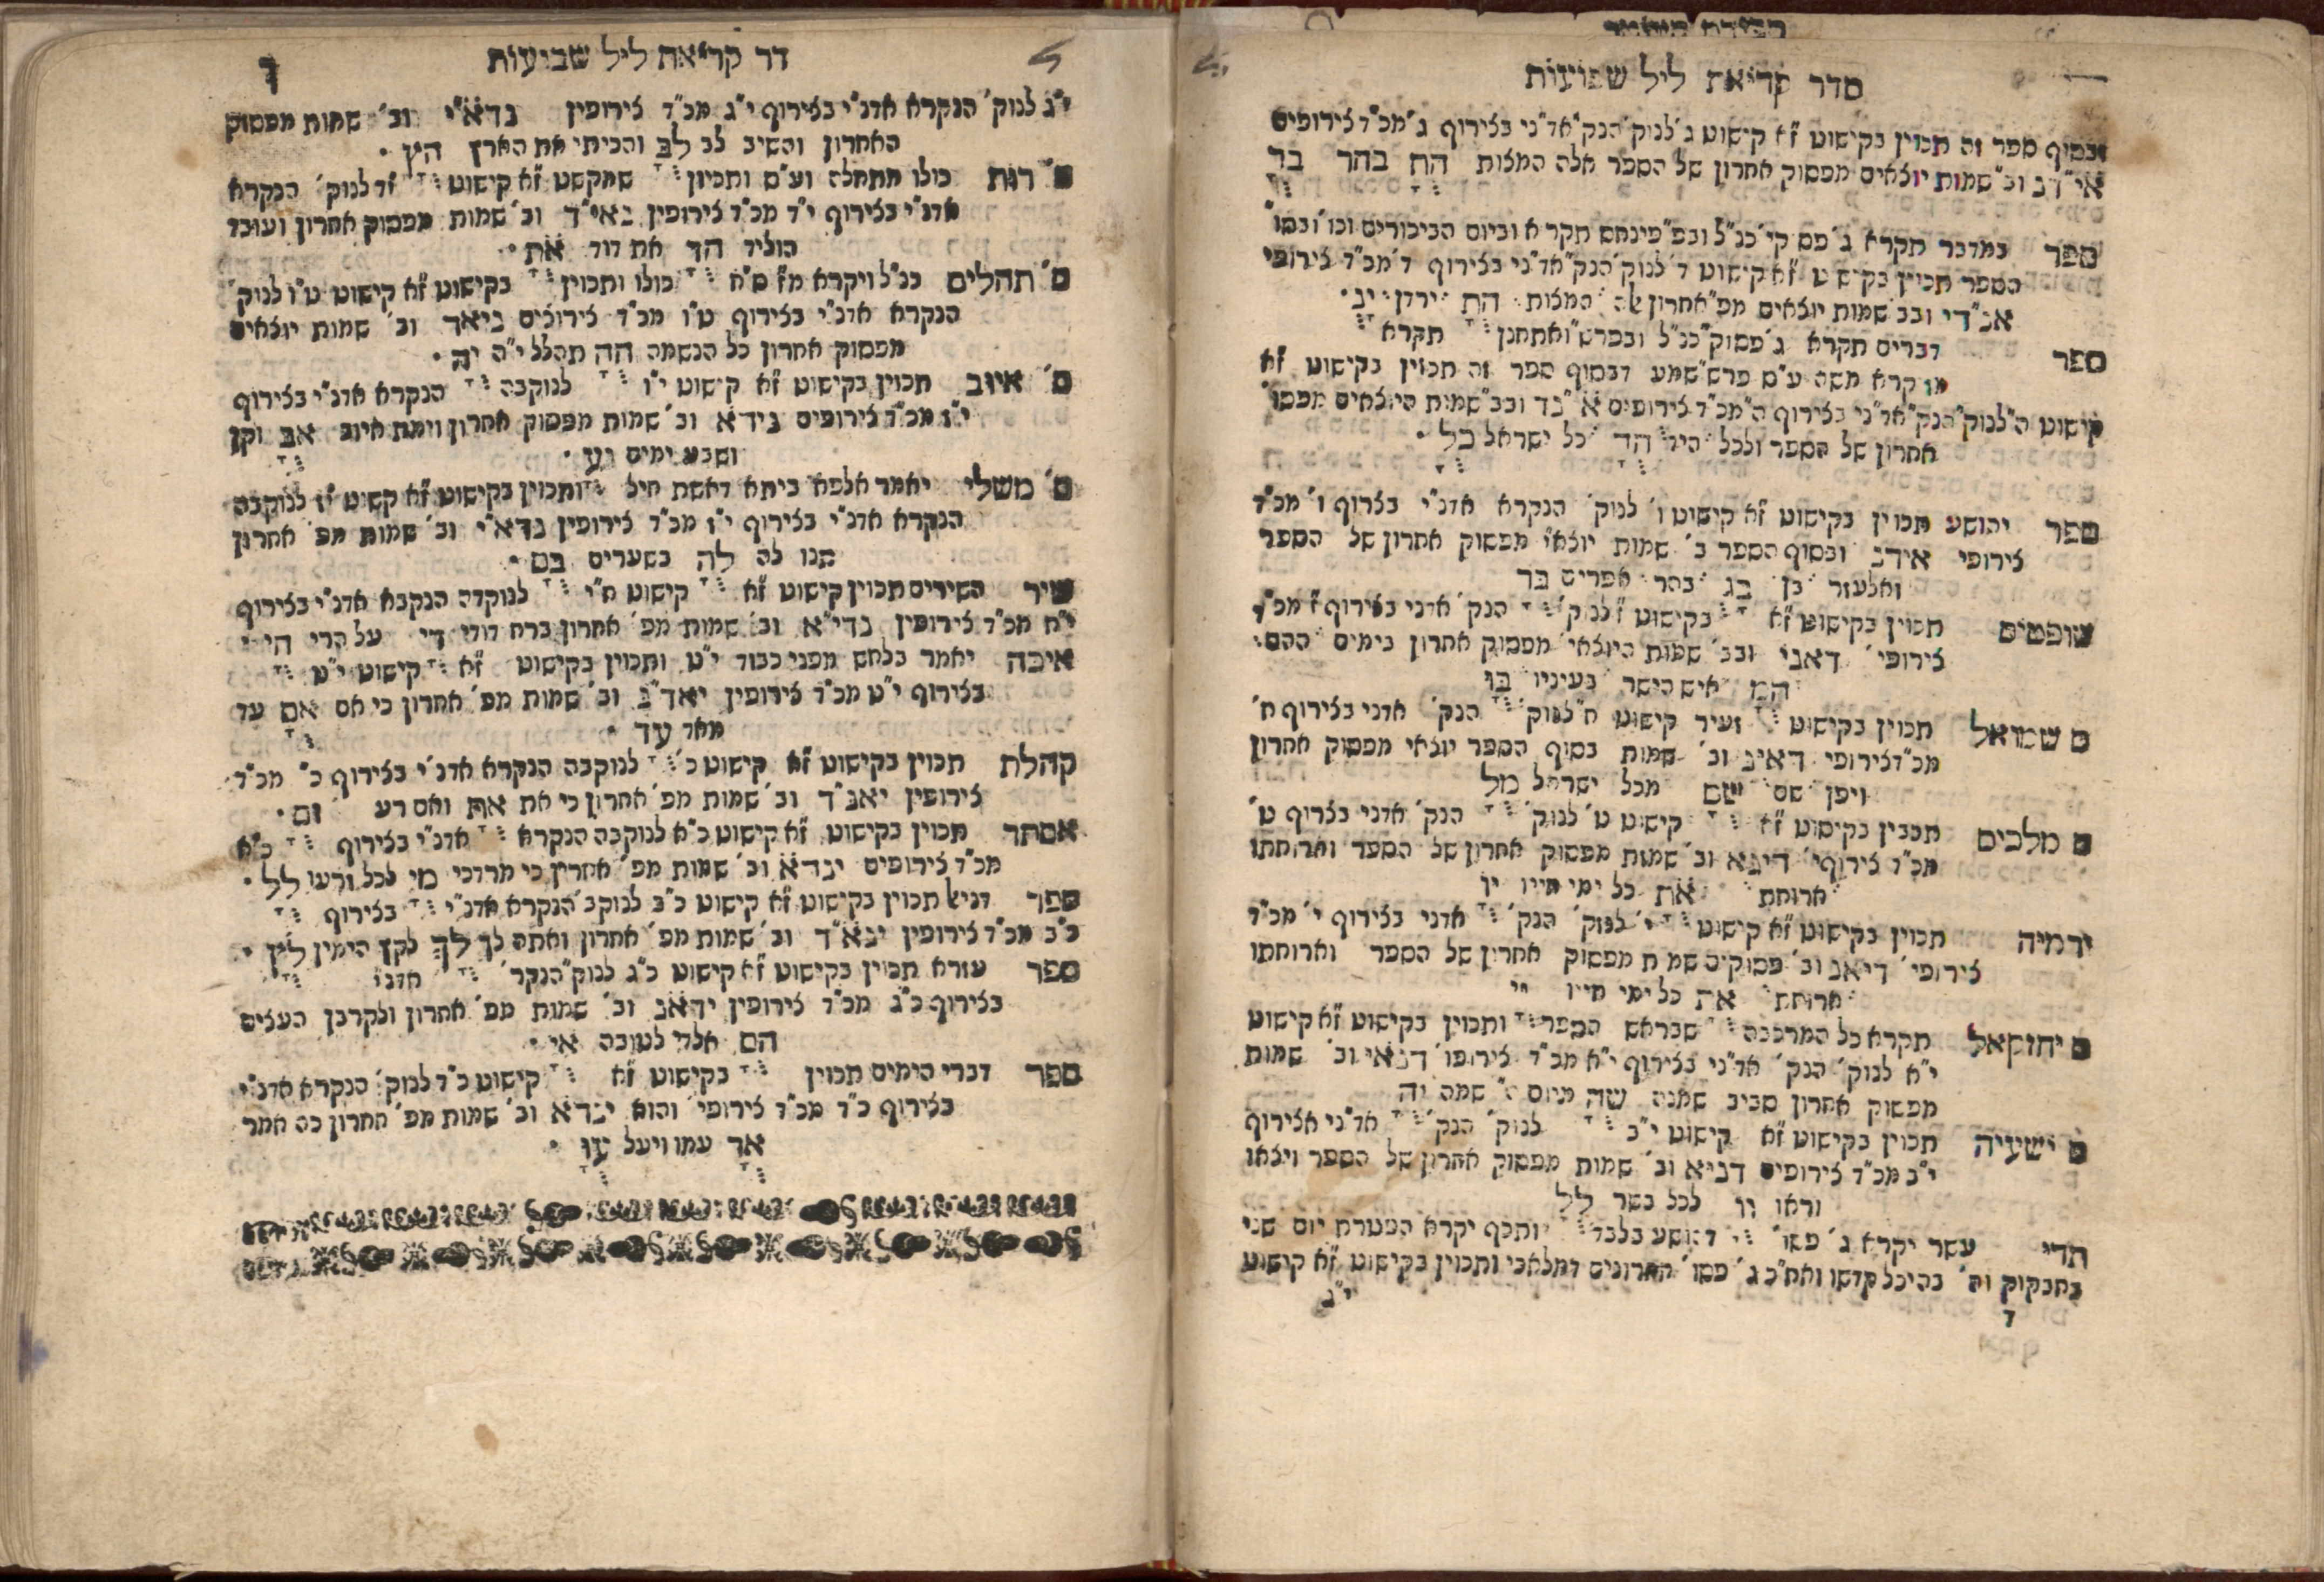 סדר קריאת ליל שבועות
ובסוף ספר זה תכוין בקישוט ז"א קישוט ג' לנוק' הנק' אד"ני בצירוף ג' מכ"ד צירופים
אי"דנ וב' שמות יוצאים מפסוק אחרון של הספר אלה המצות הח בהר בד
ספר במדבר תקרא ג' פס' קי' כנ"ל ובפ' פינחס תקרא וביום הביכורים וכו' ובסו'
הספר תכוין בקישוט ז"א קישוט ד' לנוק' הנק' אד"ני בצירוף ד' מכ"ד צירופי
אנ"די ובב' שמות יוצאים מפ' אחרון אלה המצות הח ירדן יב
ספר דברים תקרא ג' פסוק' כנ"ל ובפרש' ואתחנן תקרא
מן קרא משה ע"ס פרש' שמע ובסוף ספר זה תכוין בקישוט ז"א
קישוט ה' לנוק' הנק' אד"ני בצירוף ה' מכ"ד צירופים א"נד ובב' שמות היוצאים מפסו'
אחרון של הספר ולכל היד הד כל ישראל בל
ספר יהושע תכוין בקישוט ז"א קישוט ו' לנוק' הנקרא אדנ"י בצרוף ו' מכ"ד
צירופי אידנ ובסוף הספר ב' שמות יוצאי' מפסוק אחרון של הספר
ואלעזר בן בג בהר אפרים בר
שופטים תכוין בקישוט ז"א בקישוט ז' לנוק' הנק' אדני בצירוף ז' מכ"ד
צירופי' דאני ובב' שמות היוצאי' מפסוק אחרון בימים ההם
המ איש הישר בעיניו בו
ס שמואל תכוין בקישוט זעיר קישוט ח' לנוק' הנק' אדני בצירוף ח'
מכ"ד צירופי דאינ וב' שמות בסוף הספר יוצאי מפסוק אחרון
ויפן שם שם מכל ישראל מל
ס מלכים תכוין בקישוט ז"א קישוט ט' לנוק' הנק' אדני בצרוף ט'
מכ"ד צירופי' דינא וב' שמות מפסוק אחרון של הספר וארוחתו
ארוחת את כל ימי חייו יו
ירמיה תכוין בקישוט ז"א קישוט י' לנוק' הנק' אדני בצירוף י' מכ"ד
צירופי' דיאנ וב' פסוקים שמות מפסוק אחרון של הספר וארוחתו
ארוחת את כל ימי חייו יי
ס יחזקאל תקרא כל המרכבה שבראש הספר ותכוין בקישוט ז"א קישוט
י"א לנוק' הנק' אד"ני בצירוף י"א מכ"ד צירופו' דנאי וב' שמות
מפסוק אחרון סביב שמנה שה מיום ה' שמה יה
ס ישעיה תכוין בקישוט ז"א קישוט י"ב לנוק' הנק' אד"ני אצירוף
י"ב מכ"ד צירופים דניא וב' שמות מפסוק אחרון של הספר ויצאו
וראו וו לכל בשר לל
תרי עשר יקרא ג' פסו' דהושע בלבד ותכף יקרא הפטרת יום שני
בחבקוק וה' בהיכל קדשו ואח"כ ג' פסו' האחרונים דמלאכי ותכוין בקישוט ז"א קישוט
ד י"ג
דר קריאת ליל שבועות ד
י"ג לנוק' הנקרא אדנ"י בצירוף י"ג מכ"ד צירופין נדא"י וב' שמות מפסוק
האחרון והשיב לב לב והכיתי את הארץ הץ
ס' רות כולו מתחלה וע"ס ותכוין שמקשט ז"א קישוט י"ד לנוק' הנקרא
אדנ"י בצירוף י"ד מכ"ד צירופין נאי"ד וב' שמות מפסוק אחרון ועובד
הוליד הד את דוד את
ס' תהלים כנ"ל ויקרא מז' ס"ח כולו ותכוין בקישוט ז"א קישוט ט"ו לנוק'
הנקרא אדנ"י בצירוף ט"ו מכ"ד צירופים ניאד וב' שמות יוצאים
מפסוק אחרון כל הנשמה הה תהלל י"ה יה
ס' איוב תכוין בקישוט ז"א קישוט י"ו לנוקבה הנקרא אדנ"י בצירוף
י"ו מכ"ד צירופים נידא וב' שמות מפסוק אחרון וימת איוב אב זקן
ושבע ימים וע
ס' משלי יאמר אלפא ביתא דאשת חיל ותכוין בקישוט ז"א קשוט י"ז לנוקבה
הנקרא אדנ"י בצירוף י"ז מכ"ד צירופין נדא"י וב' שמות מפ' אחרון
תנו לה לה בשערים בם
שיר השירים תכוין קישוט ז"א קישוט ח"י לנוקבה הנקבא אדנ"י בצירוף
י"ח מכ"ד צירופין נדי"א וב' שמות מפ' אחרון ברח דודי די על הרי הי
איכה יאמר בלחש מפני כבוד י"ט ותכוין בקישוט ז"א קישוט י"ט
בצירוף י"ט מכ"ד צירופין יאד"נ וב' שמות מפ' אחרון כי אם אם עד
מאד עד
קהלת תכוין בקישוט ז"א קישוט כ' לנוקבה הנקרא אדנ"י בצירוף כ' מכ"ד
צירופין יאנ"ד וב' שמות מפ' אחרון כי את את ואם רע ום
אסתר תכוין בקישוט ז"א קישוט כ"א לנוקבה הנקרא אדנ"י בצירוף כ"א
מכ"ד צירופים ינדא וב' שמות מפ' אחרון כי מרדכי מי לכל זרעו לל
ספר דניאל תכוין בקישוט ז"א קישוט כ"ב לנוקב' הנקרא אדנ"י בצירוף
כ"ב מכ"ד צירופין ינא"ד וב' שמות מפ' אחרון ואתה לך לך לקץ הימין לץ
ספר עזרא תכוין בקישוט ז"א קישוט כ"ג לנוק' הנקר' אדני
בצירוף כ"ג מכ"ד צירופין ידאנ וב' שמות מפ' אחרון ולקרבן העצים
הם אלהי לטובה אי
ספר דברי הימים תכוין בקישוט ז"א קישוט כ"ד לנוק' הנקרא אדנ"י
בצירוף כ"ד מכ"ד צירופי' והוא ינדא וב' שמות מפ' אחרון כה אמר
אר עמו ויעל עו